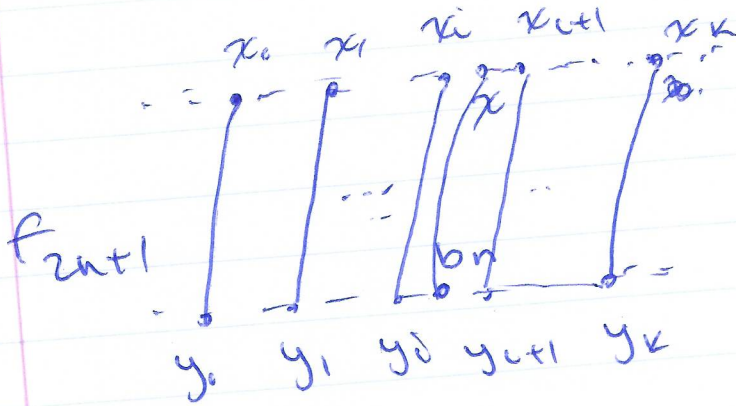 x₀ x₁ xᵢ xᵢ₊₁ xₖ
x
f₂ₙ₊₁
bₙ
y₀ y₁ yᵢ yᵢ₊₁ yₖ